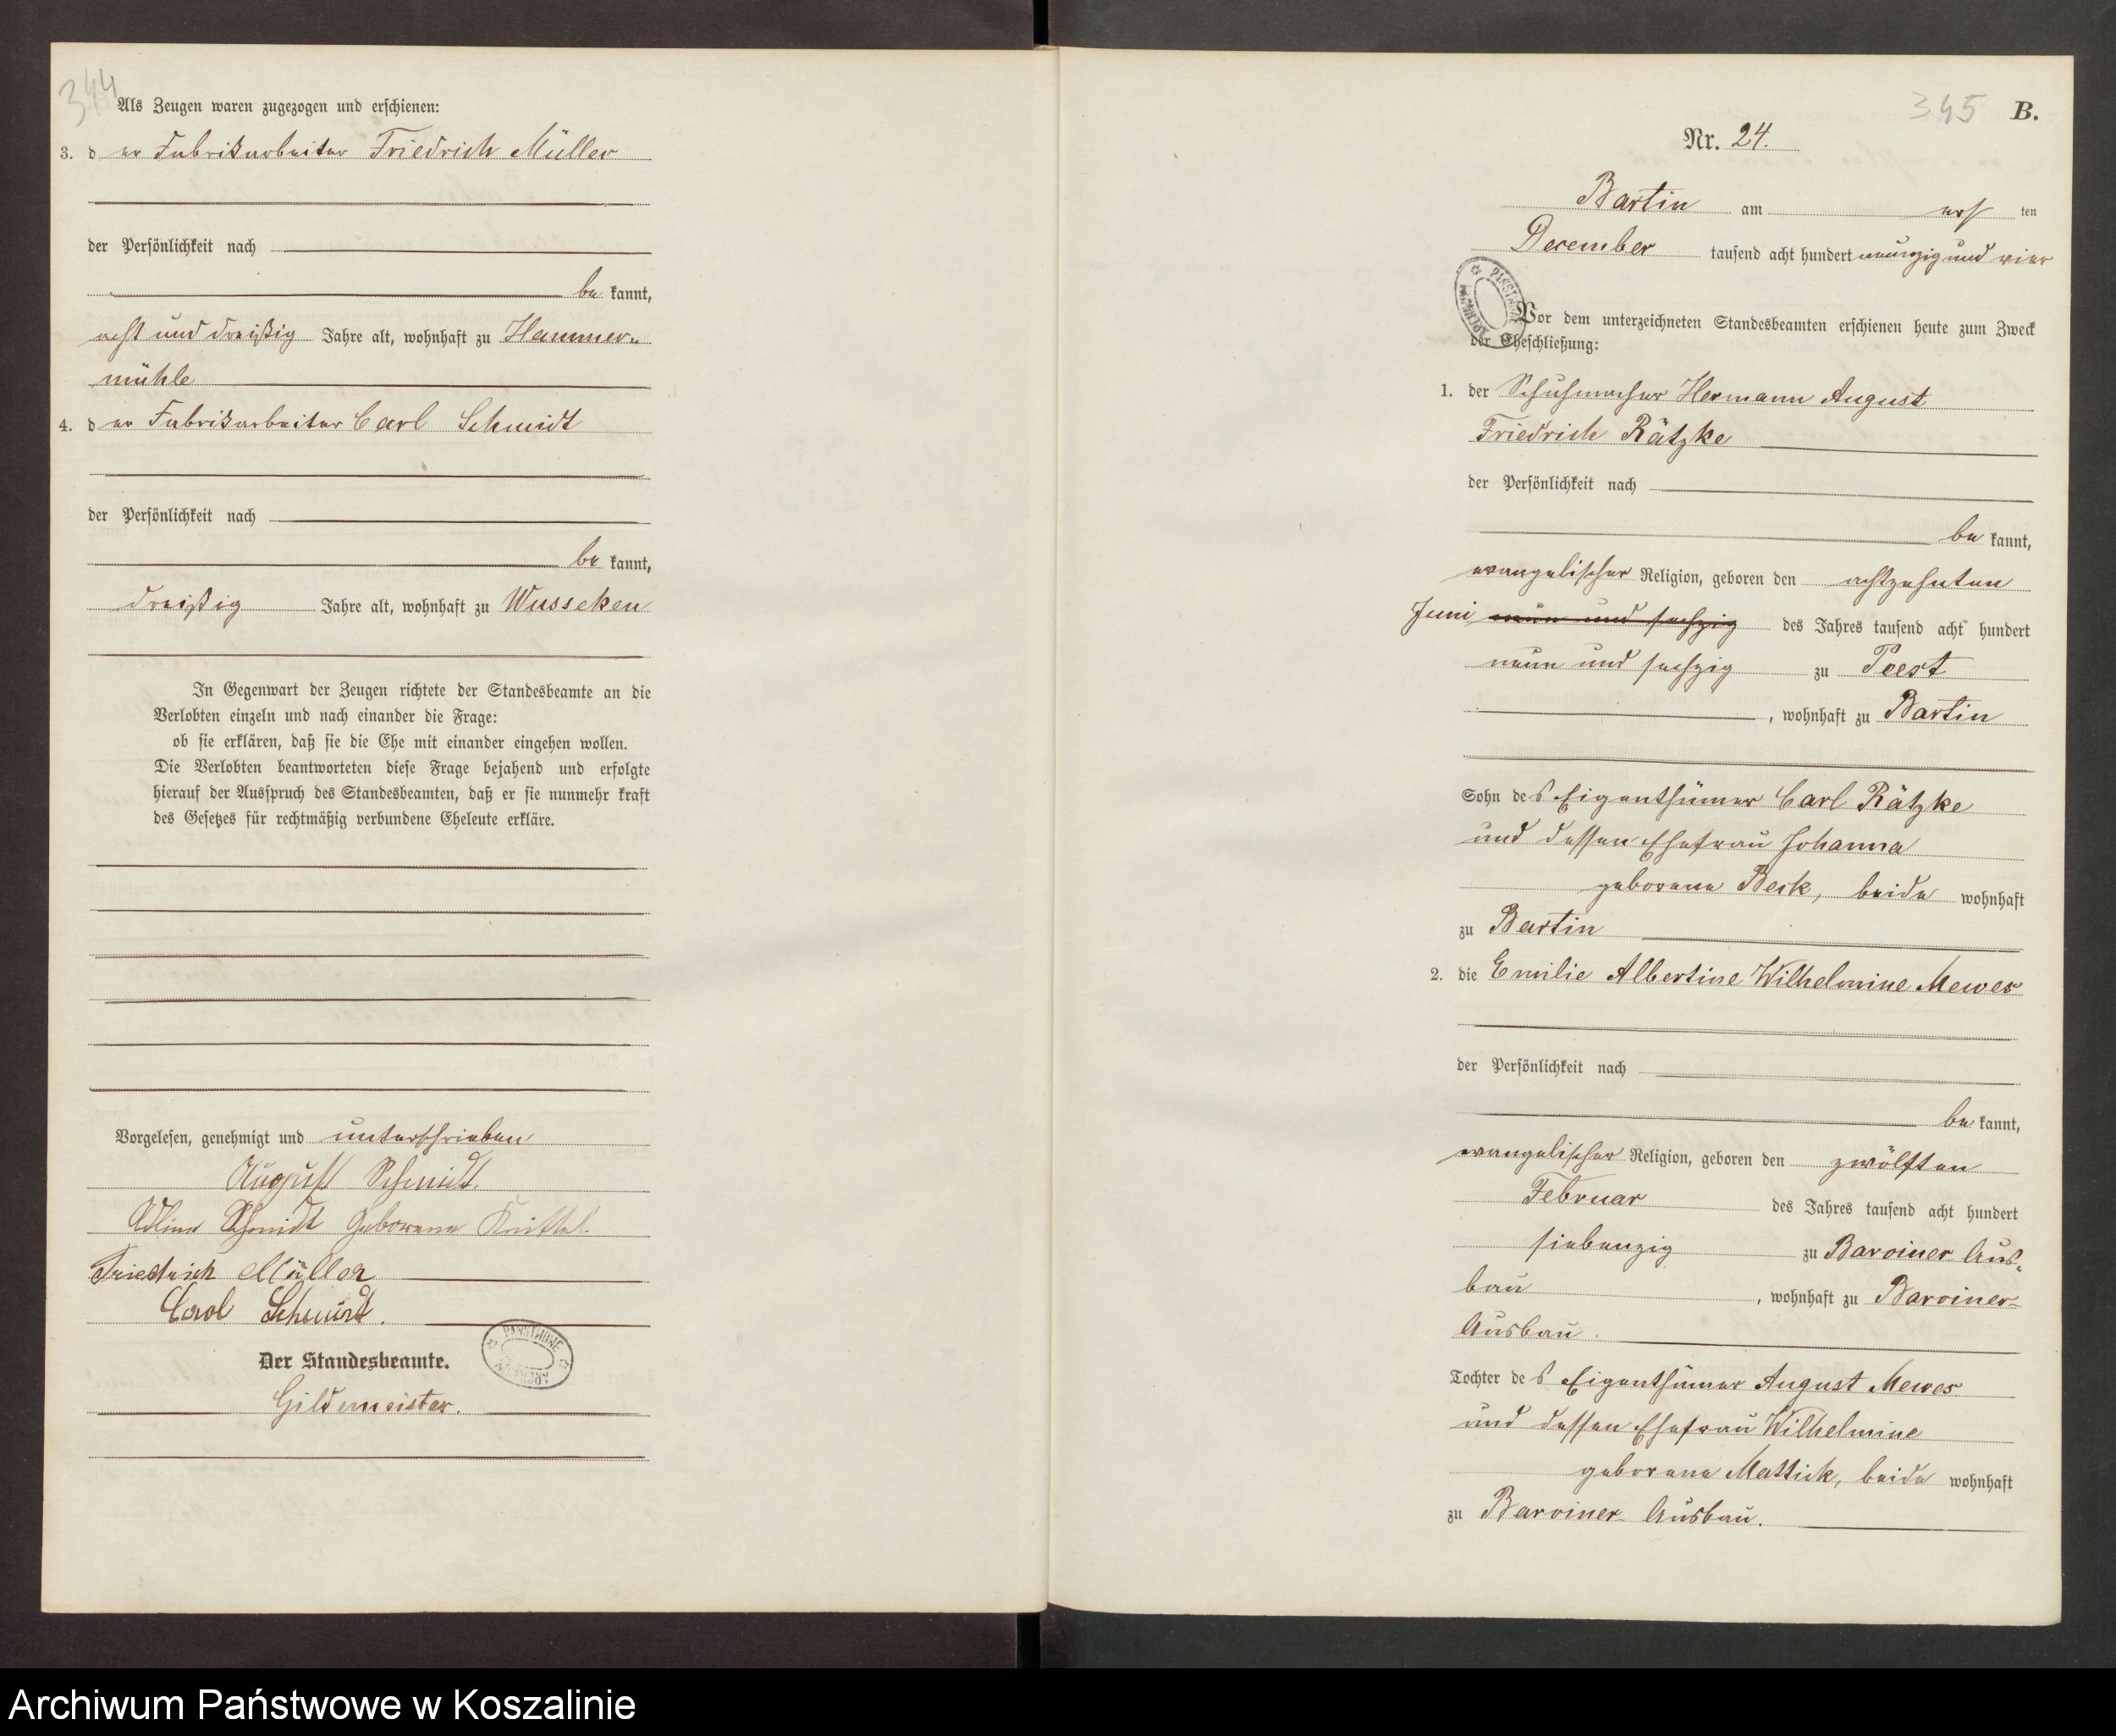 344
Als Zeugen waren zugezogen und erschienen:
3. der Fabrikarbeiter Friedrich Müller
der Persönlichkeit nach
be kannt,
acht und dreißig Jahre alt, wohnhaft zu Hammer-
mühle
4. der Fabrikarbeiter Carl Schmidt
der Persönlichkeit nach
be kannt,
dreißig Jahre alt, wohnhaft zu Wusseken
In Gegenwart der Zeugen richtete der Standesbeamte an die
Verlobten einzeln und nach einander die Frage:
ob sie erklären, daß sie die Ehe mit einander eingehen wollen.
Die Verlobten beantworteten diese Frage bejahend und erfolgte
hierauf der Ausspruch des Standesbeamten, daß er sie nunmehr kraft
des Gesetzes für rechtmäßig verbundene Eheleute erkläre.
Vorgelesen, genehmigt und unterschrieben
August Schmidt
Schmidt geborene Knittel.
Friedrich Müller
Carl Schmidt.
Der Standesbeamte.
PAŃSTWOWE ARCHIWUM
Gildemeister.
345 B.
Nr. 24.
Bartin am ersten
December tausend acht hundert neunzig und vier
Vor dem unterzeichneten Standesbeamten erschienen heute zum Zweck
der Eheschließung:
1. der Schuhmacher Hermann August
Friedrich Rätzke
der Persönlichkeit nach
be kannt,
evangelischer Religion, geboren den achtzehnten
Juni neun und sechzig des Jahres tausend acht hundert
neun und sechzig zu Peest
, wohnhaft zu Bartin
Sohn des Eigenthümer Carl Rätzke
und dessen Ehefrau Johanna
geborene Beck, beide wohnhaft
zu Bartin
2. die Emilie Albertine Wilhelmine Mewes
der Persönlichkeit nach
be kannt,
evangelischer Religion, geboren den zwölften
Februar des Jahres tausend acht hundert
siebenzig zu Barviner Aus-
bau , wohnhaft zu Barviner-
Ausbau.
Tochter des Eigenthümer August Mewes
und dessen Ehefrau Wilhelmine
geborene Mattick, beide wohnhaft
zu Barviner Ausbau.
Archiwum Państwowe w Koszalinie